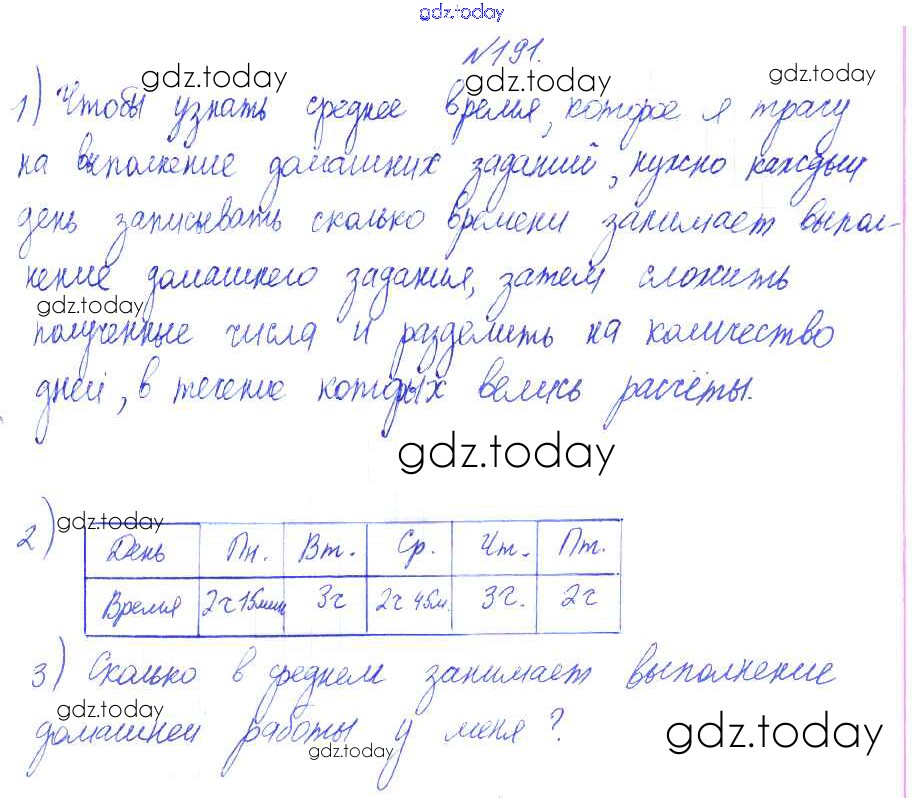 gdz.today
№191.
gdz.today gdz.today gdz.today
1) Чтобы узнать среднее время, которое я трачу
на выполнение домашних заданий, нужно каждый
день записывать сколько времени занимает выпол-
нение домашнего задания, затем сложить
gdz.today
полученные числа и разделить на количество
дней, в течение которых велись расчёты.
gdz.today
2) gdz.today
День Пн. Вт. Ср. Чт. Пт.
Время 2ч 15мин 3ч 2ч 45м. 3ч. 2ч
3) Сколько в среднем занимает выполнение
gdz.today
домашней работы у меня?
gdz.today gdz.today